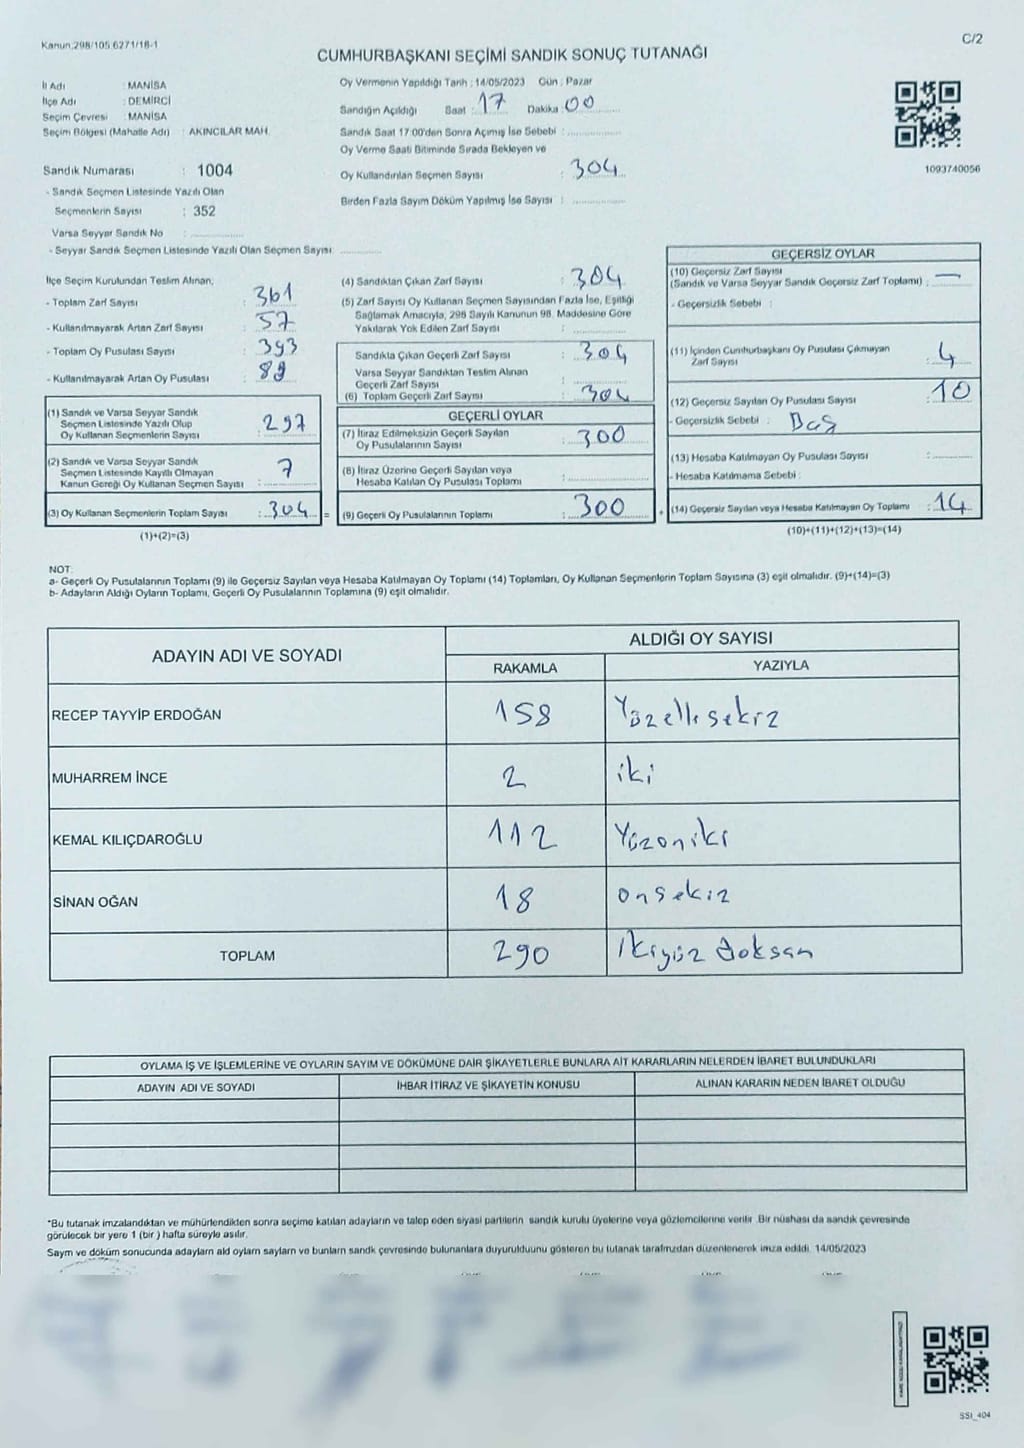 Kanun;298/105.6271/18-1
C/2
CUMHURBAŞKANI SEÇİMİ SANDIK SONUÇ TUTANAĞI
İl Adı : MANİSA
İlçe Adı : DEMİRCİ
Seçim Çevresi : MANİSA
Seçim Bölgesi (Mahalle Adı) : AKINCILAR MAH.
Oy Vermenin Yapıldığı Tarih : 14/05/2023 Gün : Pazar
Sandığın Açıldığı Saat : 17 Dakika 00
Sandık Saat 17:00'den Sonra Açımış İse Sebebi :
Oy Verme Saati Bitiminde Sırada Bekleyen ve
Oy Kullandırılan Seçmen Sayısı : 304
Birden Fazla Sayım Döküm Yapılmış İse Sayısı :
1093740056
Sandık Numarası : 1004
- Sandık Seçmen Listesinde Yazılı Olan
Seçmenlerin Sayısı : 352
Varsa Seyyar Sandık No :
- Seyyar Sandık Seçmen Listesinde Yazılı Olan Seçmen Sayısı
İlçe Seçim Kurulundan Teslim Alınan;
- Toplam Zarf Sayısı : 361
- Kullanılmayarak Artan Zarf Sayısı : 57
- Toplam Oy Pusulası Sayısı : 393
- Kullanılmayarak Artan Oy Pusulası : 89
(1) Sandık ve Varsa Seyyar Sandık
Seçmen Listesinde Yazılı Olup
Oy Kullanan Seçmenlerin Sayısı : 297
(2) Sandık ve Varsa Seyyar Sandık
Seçmen Listesinde Kayıtlı Olmayan
Kanun Gereği Oy Kullanan Seçmen Sayısı : 7
(3) Oy Kullanan Seçmenlerin Toplam Sayısı : 304 =
(1)+(2)=(3)
(4) Sandıktan Çıkan Zarf Sayısı : 304
(5) Zarf Sayısı Oy Kullanan Seçmen Sayısından Fazla İse, Eşitliği
Sağlamak Amacıyla, 298 Sayılı Kanunun 98. Maddesine Göre
Yakılarak Yok Edilen Zarf Sayısı :
Sandıkta Çıkan Geçerli Zarf Sayısı : 304
Varsa Seyyar Sandıktan Teslim Alınan
Geçerli Zarf Sayısı :
(6) Toplam Geçerli Zarf Sayısı : 304
GEÇERLİ OYLAR
(7) İtiraz Edilmeksizin Geçerli Sayılan
Oy Pusulalarının Sayısı : 300
(8) İtiraz Üzerine Geçerli Sayılan veya
Hesaba Katılan Oy Pusulası Toplamı :
(9) Geçerli Oy Pusulalarının Toplamı : 300 +
GEÇERSİZ OYLAR
(10) Geçersiz Zarf Sayısı
(Sandık ve Varsa Seyyar Sandık Geçersiz Zarf Toplamı) : —
- Geçersizlik Sebebi :
(11) İçinden Cumhurbaşkanı Oy Pusulası Çıkmayan
Zarf Sayısı : 4
(12) Geçersiz Sayılan Oy Pusulası Sayısı : 10
- Geçersizlik Sebebi : Boş
(13) Hesaba Katılmayan Oy Pusulası Sayısı :
- Hesaba Katılmama Sebebi :
(14) Geçersiz Sayılan veya Hesaba Katılmayan Oy Toplamı : 14
(10)+(11)+(12)+(13)=(14)
NOT:
a- Geçerli Oy Pusulalarının Toplamı (9) ile Geçersiz Sayılan veya Hesaba Katılmayan Oy Toplamı (14) Toplamları, Oy Kullanan Seçmenlerin Toplam Sayısına (3) eşit olmalıdır. (9)+(14)=(3)
b- Adayların Aldığı Oyların Toplamı, Geçerli Oy Pusulalarının Toplamına (9) eşit olmalıdır.
ADAYIN ADI VE SOYADI
ALDIĞI OY SAYISI
RAKAMLA YAZIYLA
RECEP TAYYİP ERDOĞAN 158 Yüzellisekiz
MUHARREM İNCE 2 iki
KEMAL KILIÇDAROĞLU 112 Yüzoniki
SİNAN OĞAN 18 onsekiz
TOPLAM 290 ikiyüz doksan
OYLAMA İŞ VE İŞLEMLERİNE VE OYLARIN SAYIM VE DÖKÜMÜNE DAİR ŞİKAYETLERLE BUNLARA AİT KARARLARIN NELERDEN İBARET BULUNDUKLARI
ADAYIN ADI VE SOYADI İHBAR İTİRAZ VE ŞİKAYETİN KONUSU ALINAN KARARIN NEDEN İBARET OLDUĞU
*Bu tutanak imzalandıktan ve mühürlendikten sonra seçime katılan adayların ve talep eden siyasi partilerin sandık kurulu üyelerine veya gözlemcilerine verilir. Bir nüshası da sandık çevresinde
görülecek bir yere 1 (bir ) hafta süreyle asılır.
Saym ve döküm sonucunda adaylarn ald oylarn saylarn ve bunlarn sandk çevresinde bulunanlara duyurulduunu gösteren bu tutanak tarafmzdan düzenlenerek imza edildi. 14/05/2023
SSI_404